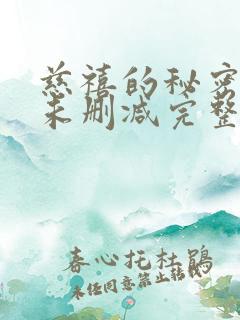 慈禧的秘密
未删减完整
春心托杜鹃
未经同意禁止转载